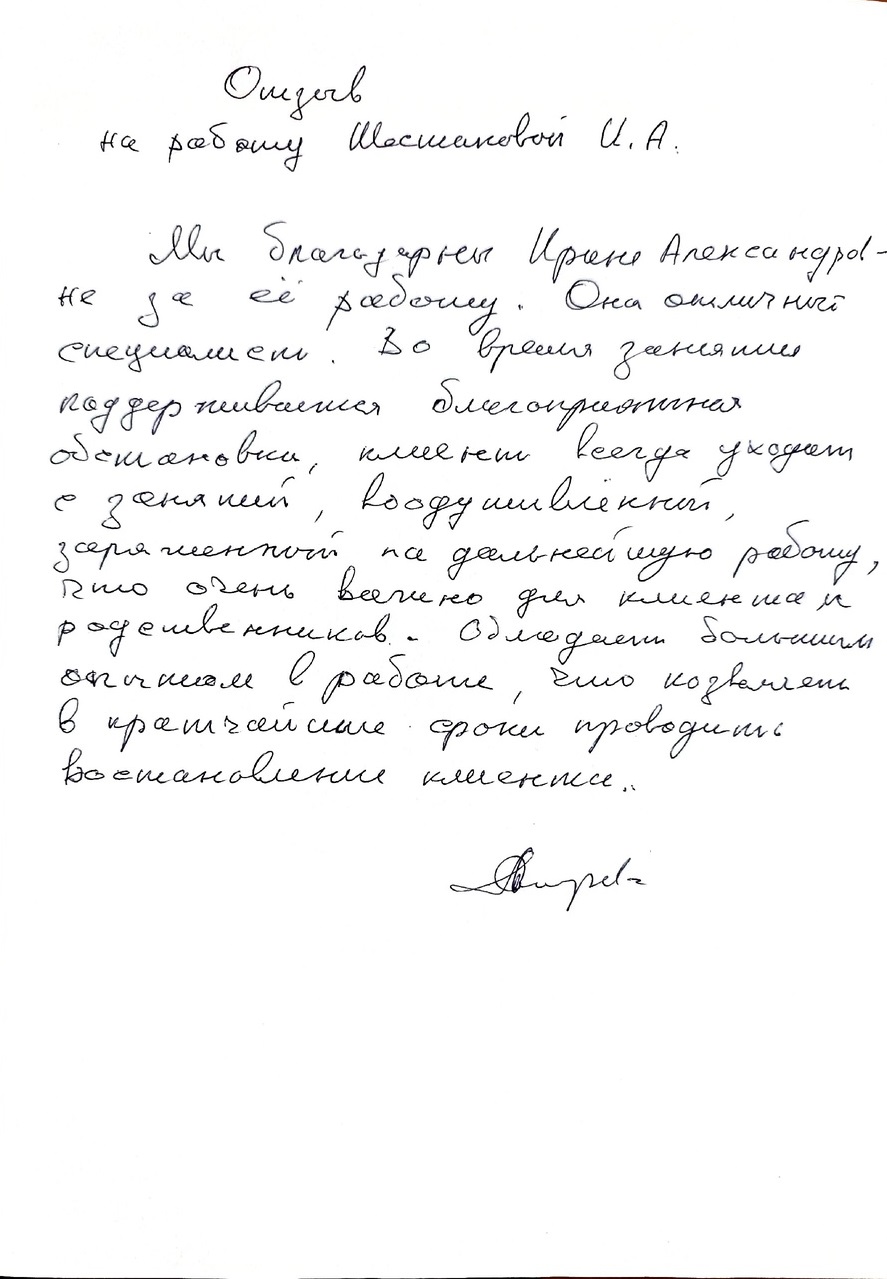 Отзыв
на работу Шестаковой И.А.
Мы благодарны Ирине Александров-
не за её работу. Она отличный
специалист. Во время занятий
поддерживается благоприятная
обстановка, клиент всегда уходит
с занятий, воодушивлённый,
заряженный на дальнейшую работу,
что очень важно для клиента и
родственников. Обладает большим
опытом в работе, что позволяет
в кратчайшие сроки проводить
востановление клиента.